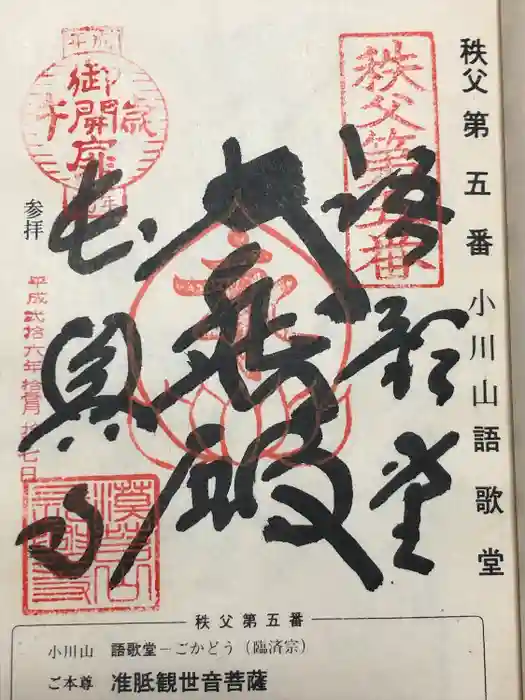 秩父第五番 小川山語歌堂
秩父第五番
語歌堂
大悲殿
長興寺
平成
御開扉
午歳
参拝
平成弐拾六年 拾壹月 拾七日
秩父第五番
小川山 語歌堂－ごかどう（臨済宗）
ご本尊 准胝観世音菩薩